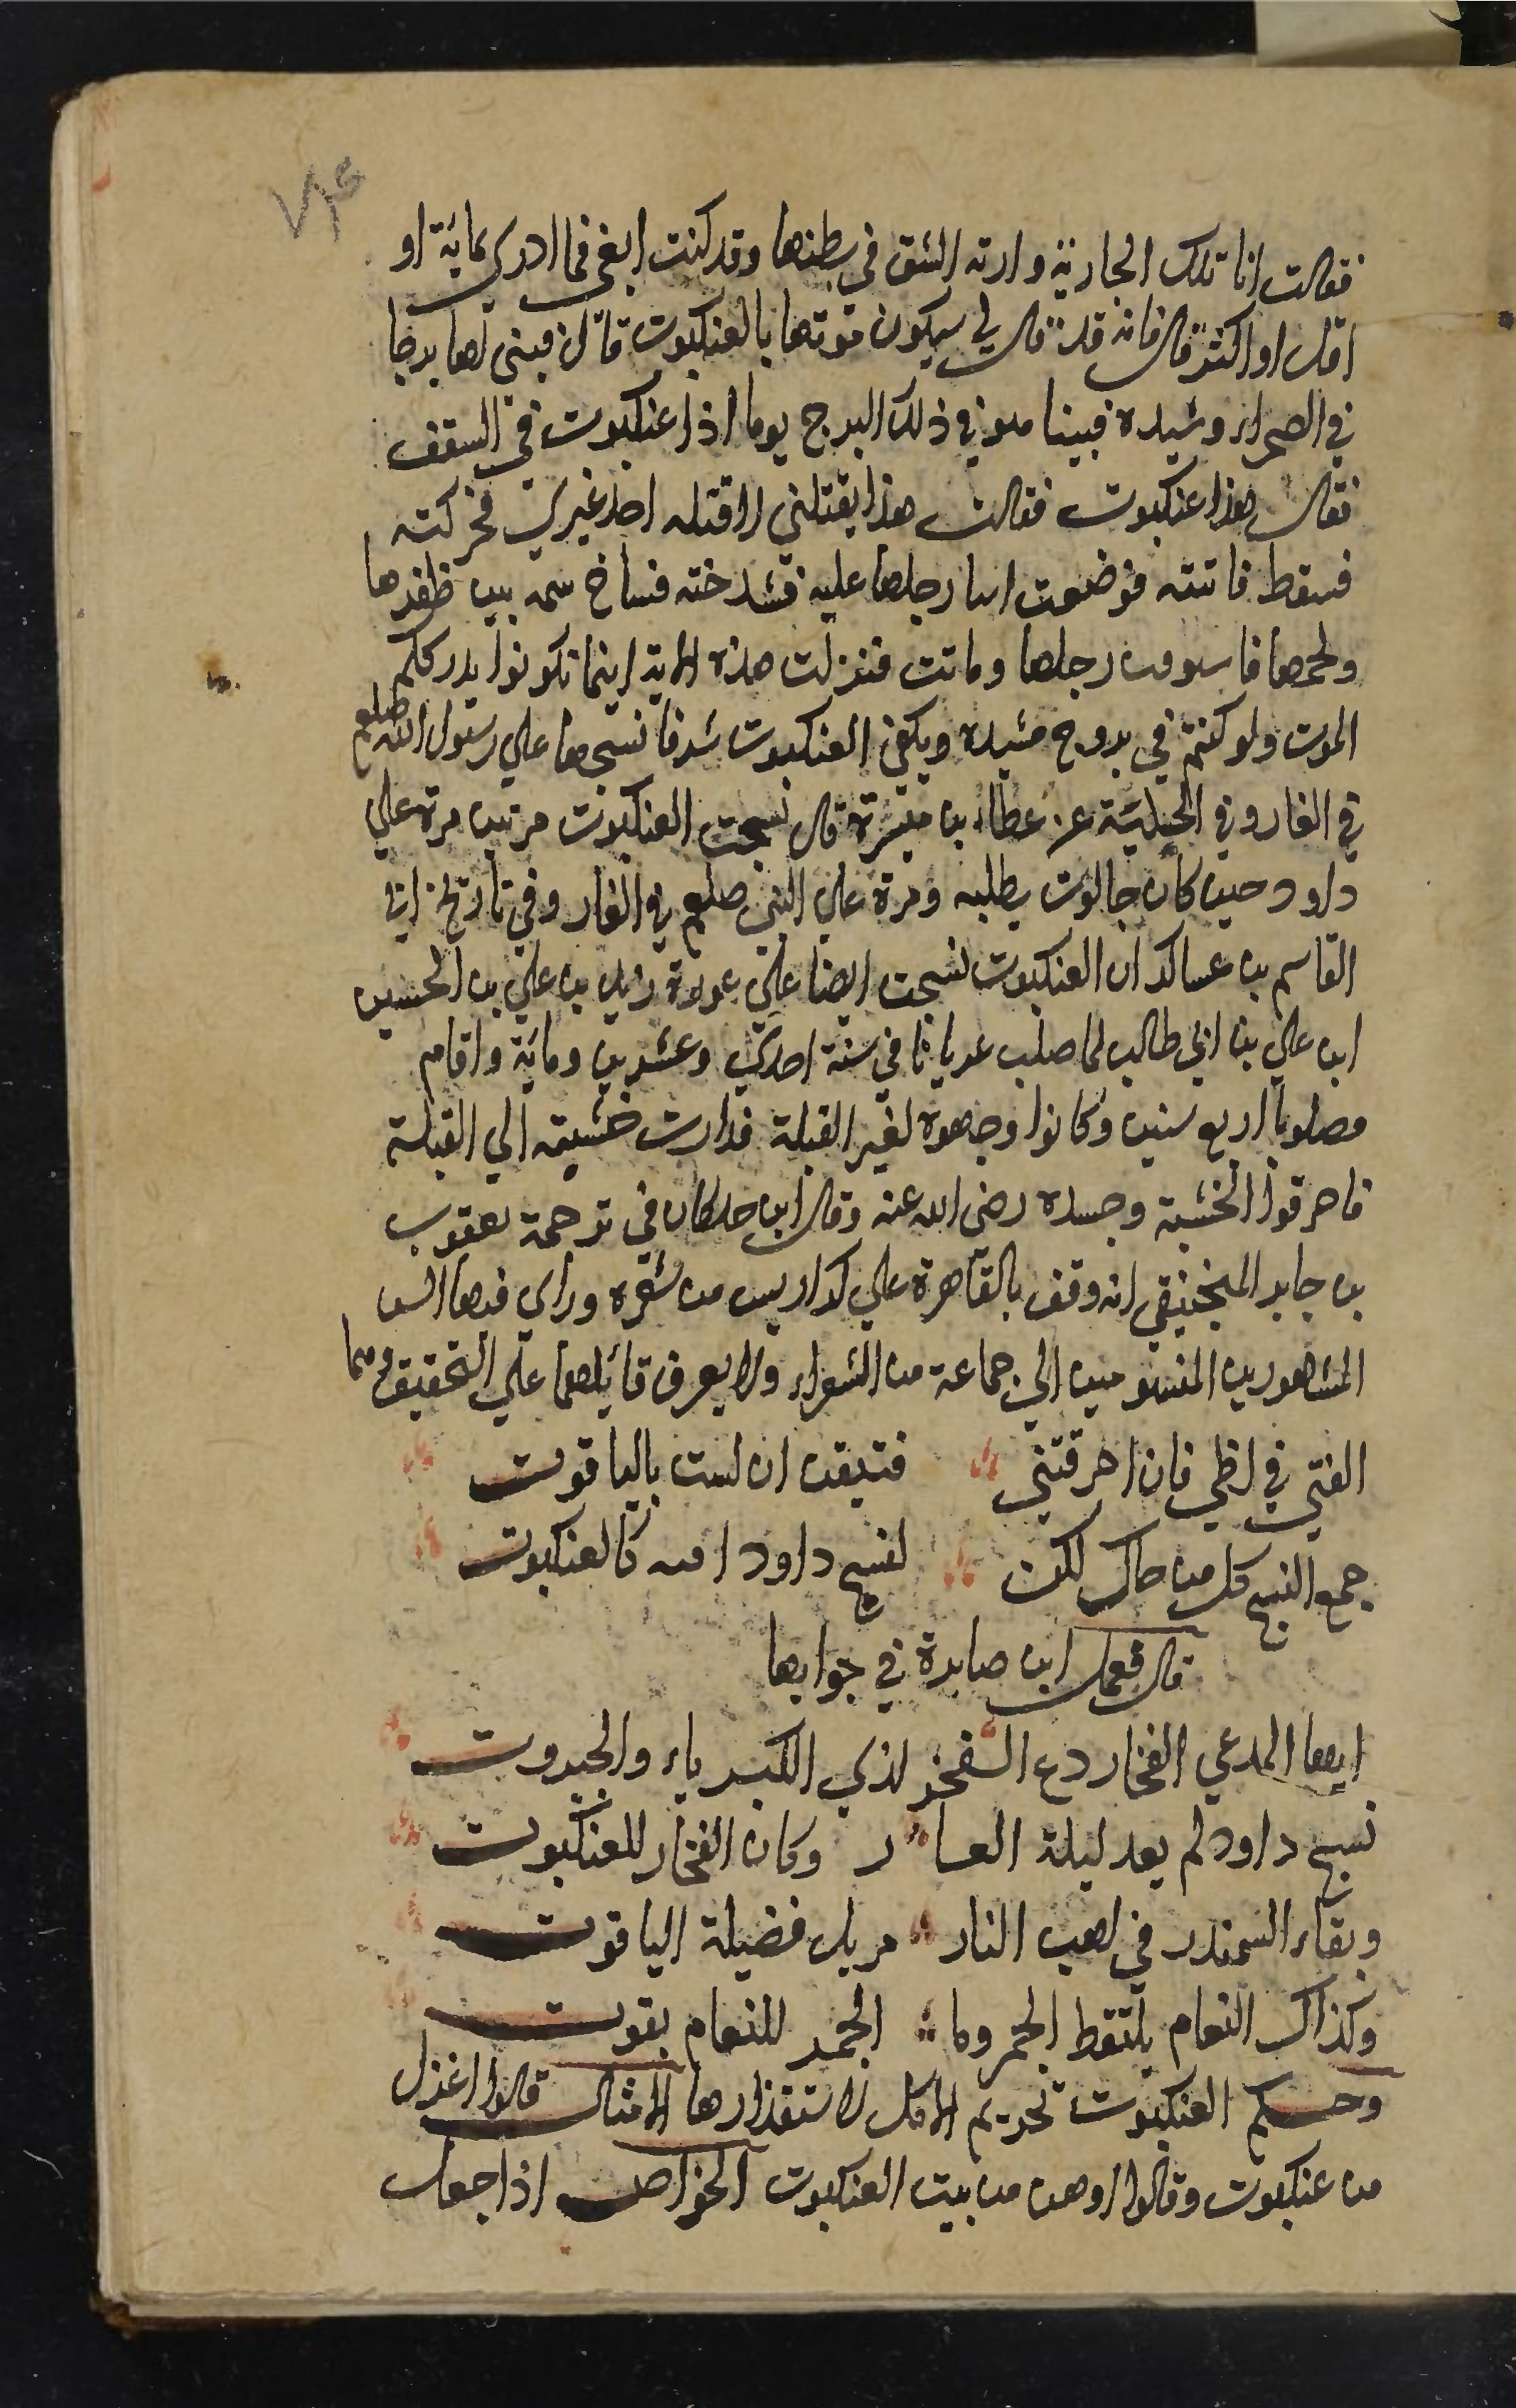 فقالت انا تلك الجارية وارته الشق في بطنها وقد كنت ابغي فما ادري بمائة او
اقل او اكثر قال فانه قد قال لي سيكون موتها بالعنكبوت قال فبنى لها برجا
في الصحراء وشيده فبينا هو في ذلك البرج يوما اذا عنكبوت في السقف
فقال هذا عنكبوت فقالت هذا يقتلني لا قتله احد غيري فحركته
فسقط فاتته فوضعت ابهام رجلها عليه فشدخته فساخ سمه بين ظفرها
ولحمها فاسودت رجلها وماتت فنزلت هذه الاية اينما تكونوا يدرككم
الموت ولو كنتم في بروج مشيدة ويكفي العنكبوت شرفا نسجها علي رسول الله صلعم
في الغار وفي الحلية عن عطاء بن ميسرة قال نسجت العنكبوت مرتين مرة علي
داود حين كان جالوت يطلبه ومرة علي النبي صلعم في الغار وفي تاريخ ابي
القاسم بن عساكر ان العنكبوت نسجت ايضا علي عورة زيد بن علي بن الحسين
ابن علي بن ابي طالب لما صلب عريانا في سنة احدي وعشرين ومائة واقام
مصلوبا اربع سنين وكانوا وجهوه لغير القبلة فدارت خشبته الي القبلة
فاحرقوا الخشبة وجسده رضى الله عنه وقال ابن خلكان في ترجمة يعقوب
بن جابر المنجنيقي انه وقف بالقاهرة علي كراريس من شعره وراى فيها البيتين
المشهورين المنسوبين الي جماعة من الشعراء ولا يعرف قائلهما علي التحقيق وهما
القني في لظي فان احرقتني فتيقن ان لست بالياقوت
جمع النسج كل من حاك لكن نسج داود ليس كالعنكبوت
قال فعمل ابن صابرة في جوابها
ايها المدعي الفخار دع الفخر لذي الكبرياء والجبروت
نسج داود لم يفد ليلة الغار وكان الفخار للعنكبوت
وبقاء السمندر في لهب النار مزيل فضيلة الياقوت
وكذاك النعام يلتقط الجمر وما الجمر للنعام بقوت
وحكم العنكبوت تحريم الاكل لاستقذارها الامثال قالوا اغزل
من عنكبوت وقالوا اوهن من بيت العنكبوت الخواص اذا جعل